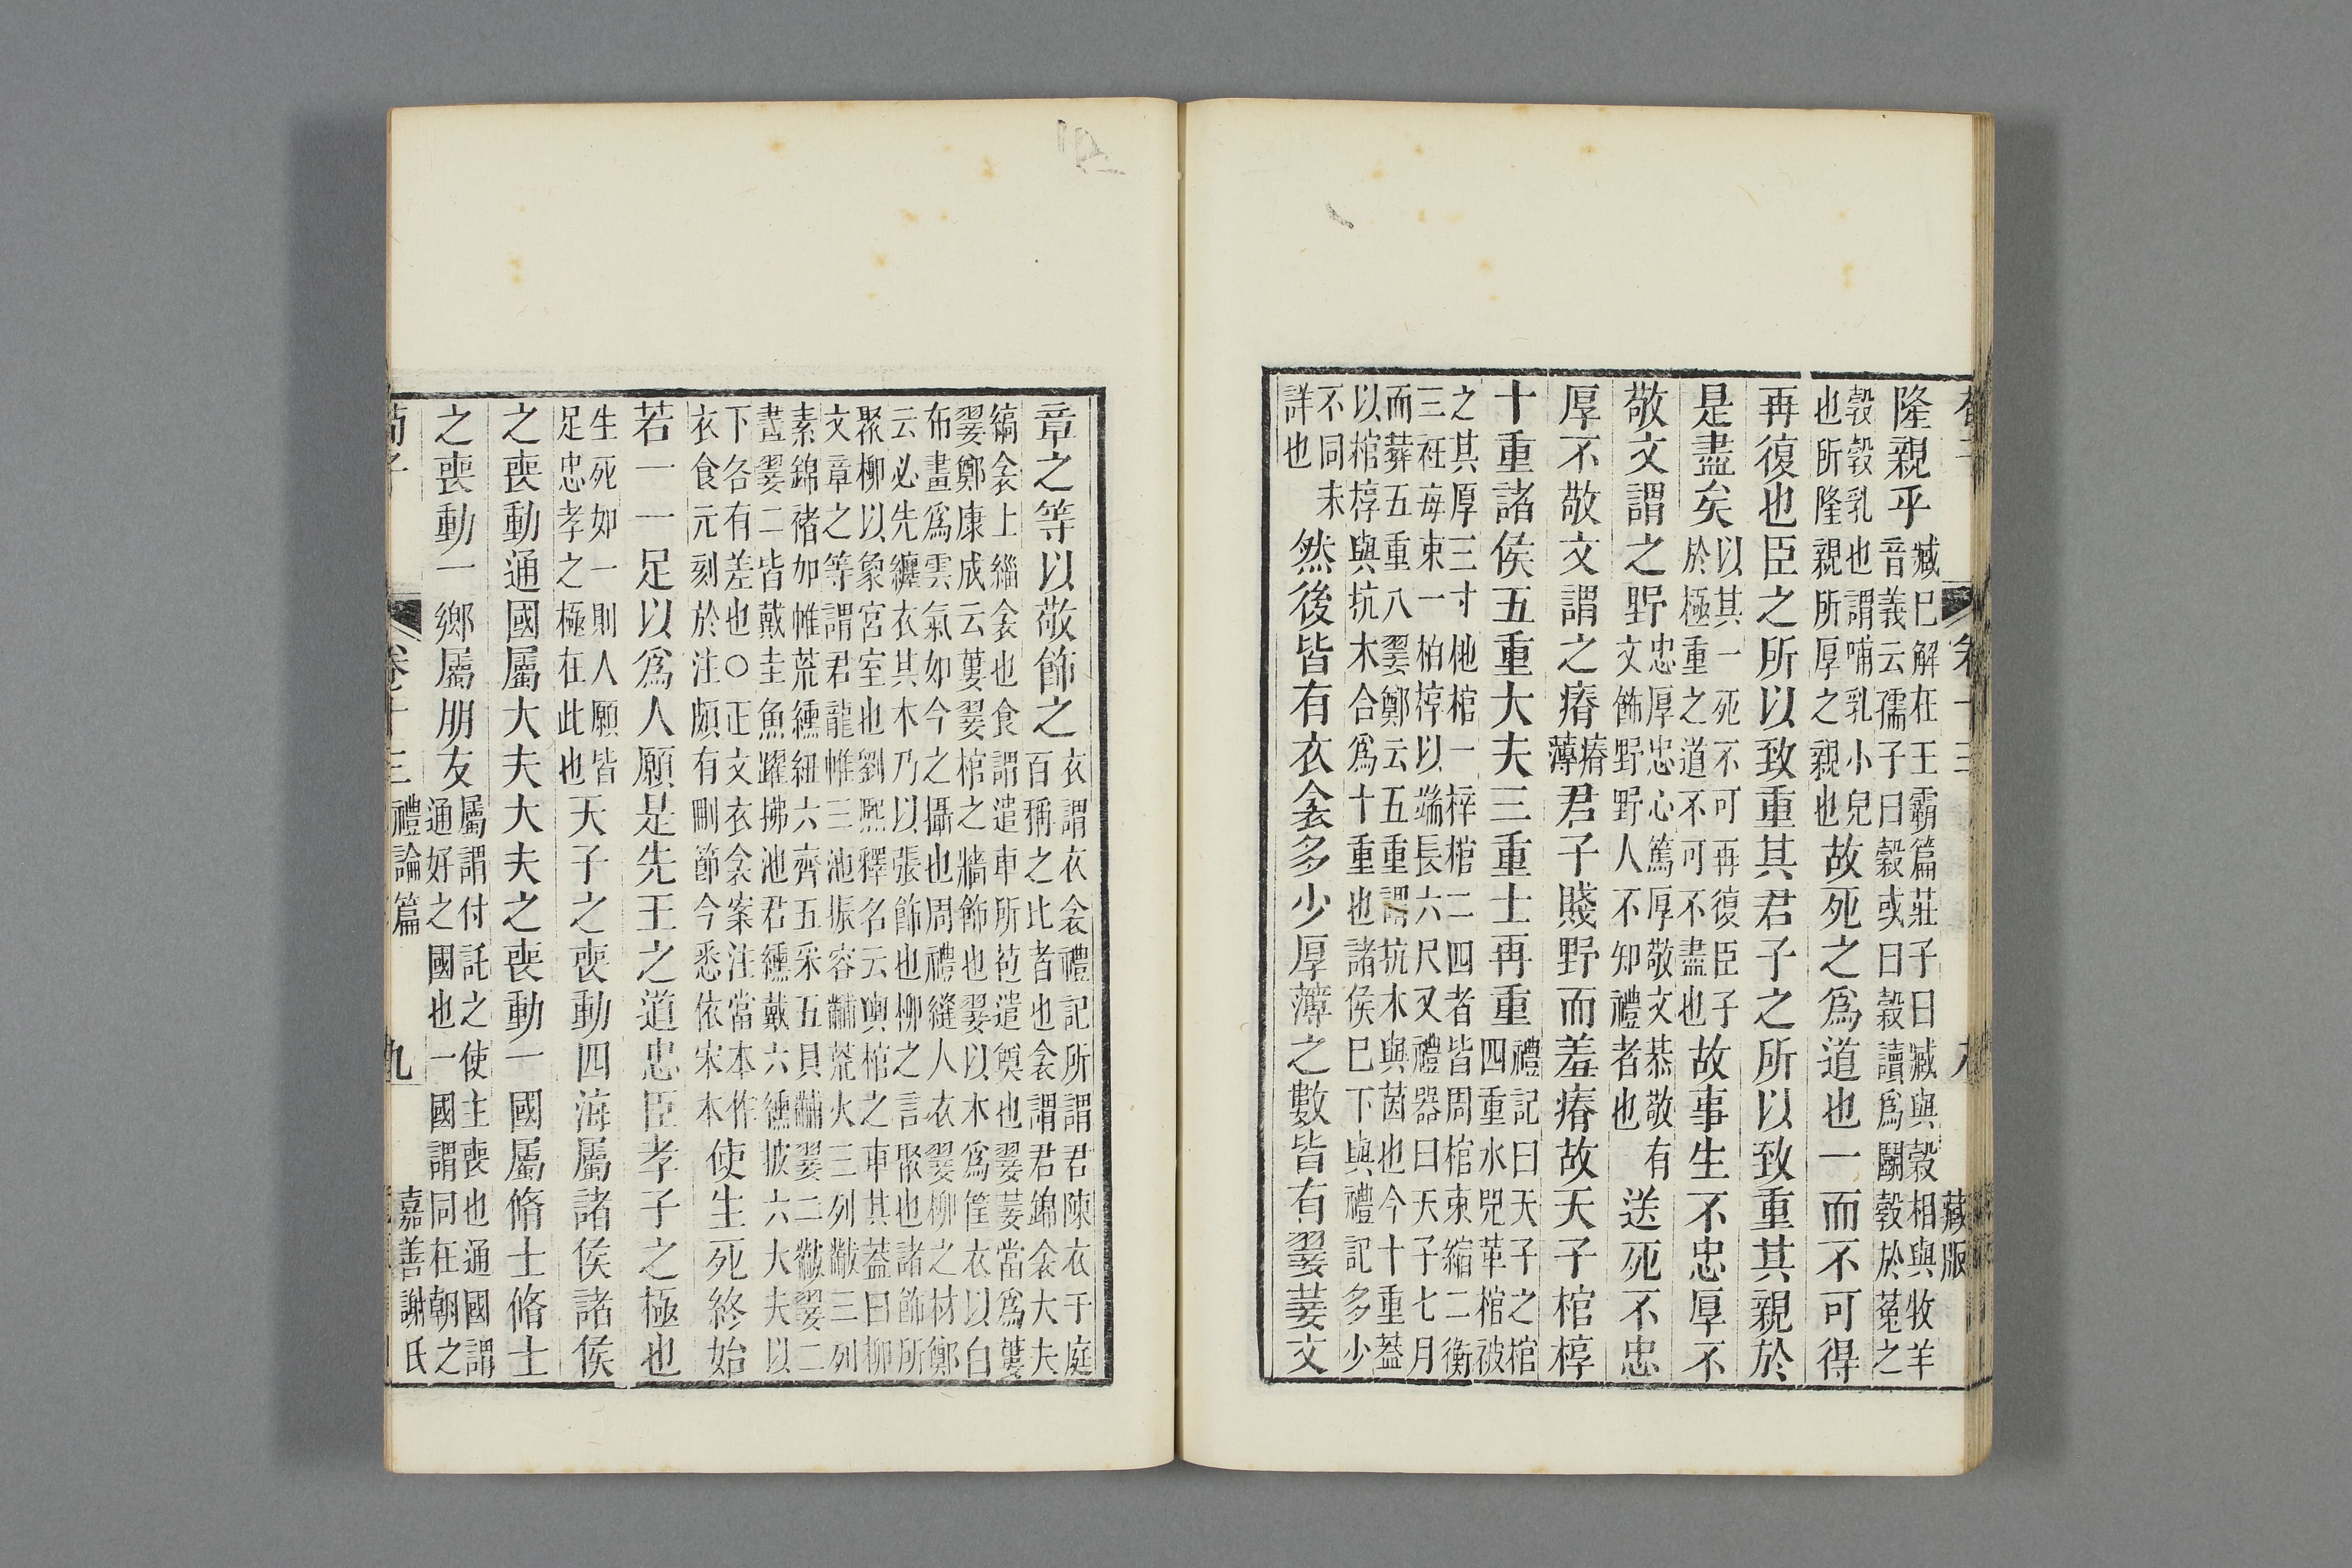 藏版
隆親乎臧巳解在王霸篇莊子曰臧與穀相與牧羊音義云孺子曰穀或曰穀讀爲鬭穀於菟之
穀穀乳也謂哺乳小兒也所隆親所厚之親也故死之爲道也一而不可得
再復也臣之所以致重其君子之所以致重其親於
是盡矣以其一死不可再復臣子於極重之道不可不盡也故事生不忠厚不
敬文謂之野忠厚忠心篤厚敬文恭敬有文飾野野人不知禮者也送死不忠
厚不敬文謂之瘠瘠薄君子賤野而羞瘠故天子棺椁
十重諸侯五重大夫三重士再重禮記曰天子之棺四重水兕革棺被
之其厚三寸杝棺一梓棺二四者皆周棺束縮二衡三衽每束一柏椁以端長六尺又禮器曰天子七月
而葬五重八翣鄭云五重謂抗木與茵也今十重葢以棺椁與抗木合爲十重也諸侯巳下與禮記多少
不同未詳也然後皆有衣衾多少厚薄之數皆有翣菨文
章之等以敬飾之衣謂衣衾禮記所謂君陳衣于庭百稱之比者也衾謂君錦衾大夫
縞衾士緇衾也食謂遣車所苞遣奠也翣菨當爲蔞翣鄭康成云蔞翣棺之牆飾也翣以木爲筐衣以白
布畫爲雲氣如今之攝也周禮縫人衣翣柳之材鄭云必先纏衣其木乃以張飾也柳之言聚也諸飾所
聚柳以象宮室也劉熙釋名云輿棺之車其葢曰柳文章之等謂君龍帷三池振容黼荒火三列黻三列
素錦褚加帷荒纁紐六齊五采五貝黼翣二黻翣二畫翣二皆戴圭魚躍拂池君纁戴六纁披六大夫以
下各有差也○正文衣衾案注當本作衣食元刻於注頗有刪節今悉依宋本使生死終始
若一一足以爲人願是先王之道忠臣孝子之極也
生死如一則人願皆足忠孝之極在此也天子之喪動四海屬諸侯諸侯
之喪動通國屬大夫大夫之喪動一國屬脩士脩士
之喪動一鄉屬朋友屬謂付託之使主喪也通國謂通好之國也一國謂同在朝之
荀子 卷十三 禮論篇 九 嘉善謝氏